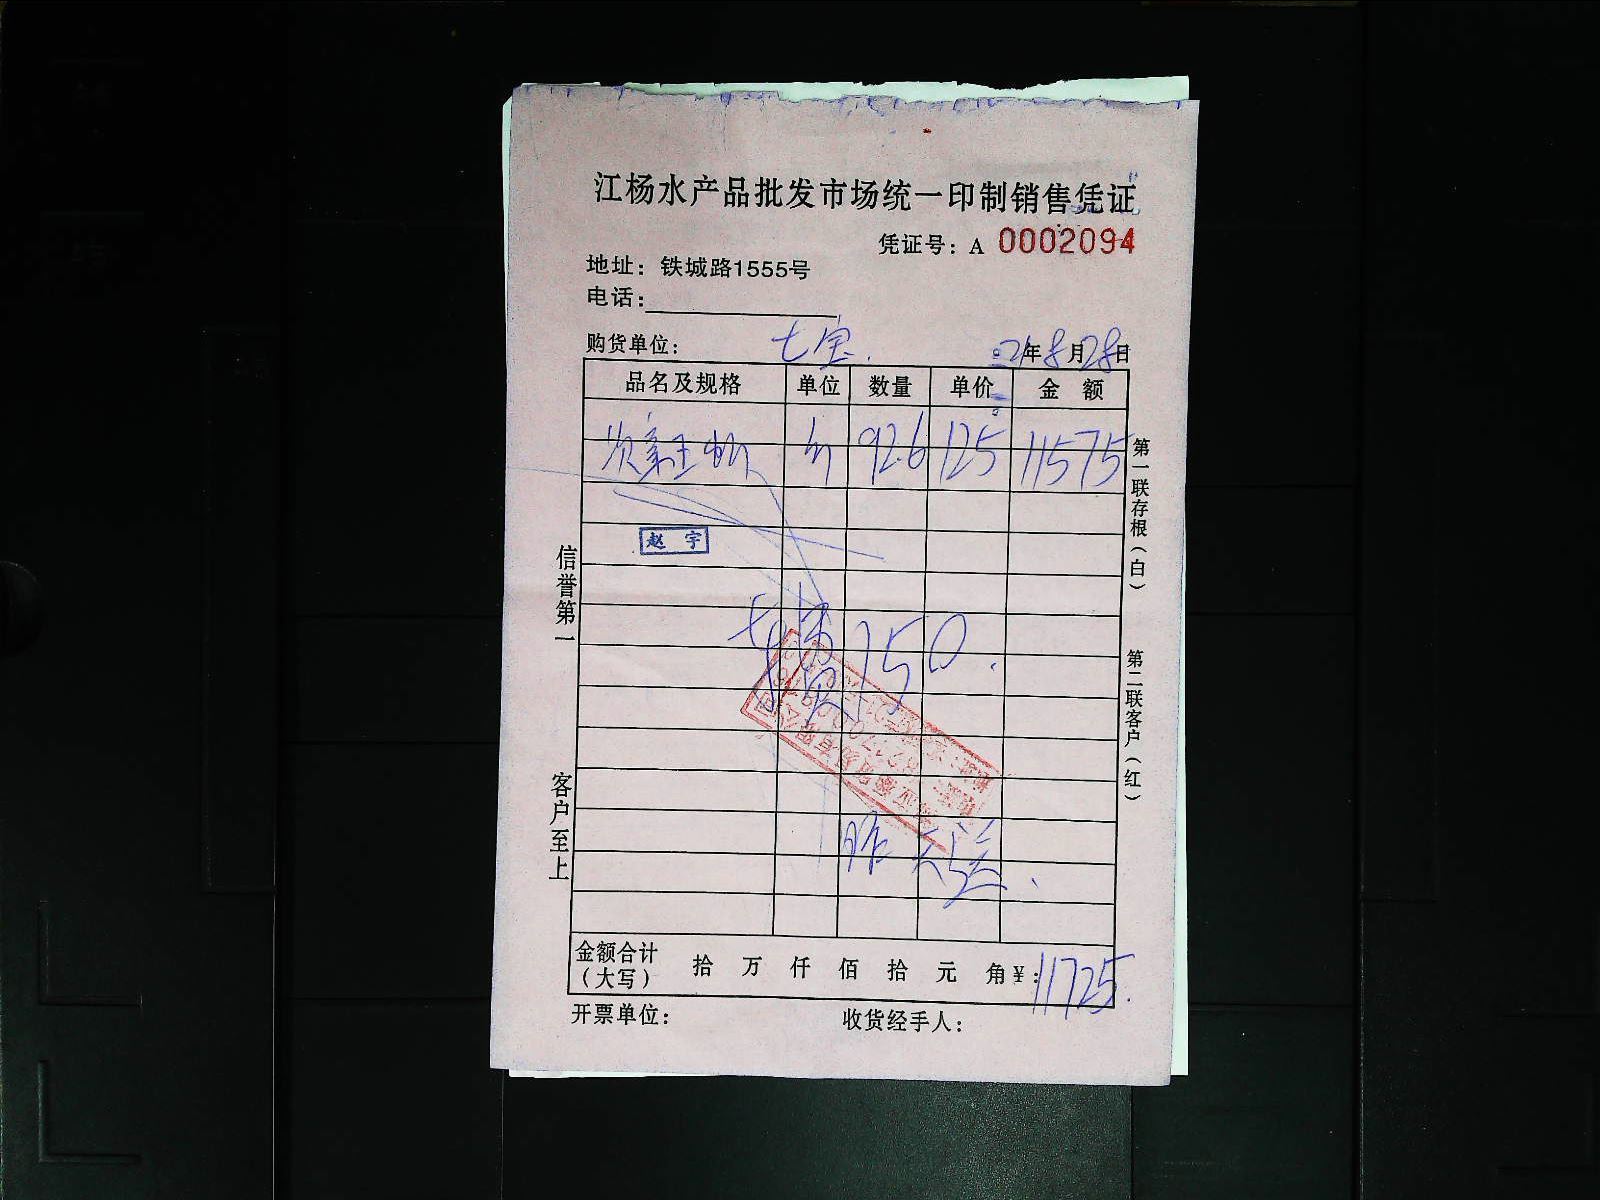 江杨水产品批发市场统一印制销售凭证
凭证号：A 0002094
地址：铁城路1555号
电话：
购货单位：七宝. 21年8月28日
品名及规格 单位 数量 单价 金 额
斤 92.6 125 11575
赵 宇
150.
昨天送.
金额合计（大写） 拾 万 仟 佰 拾 元 角 ¥：11725.
开票单位： 收货经手人：
信誉第一 客户至上
第一联存根（白） 第二联客户（红）